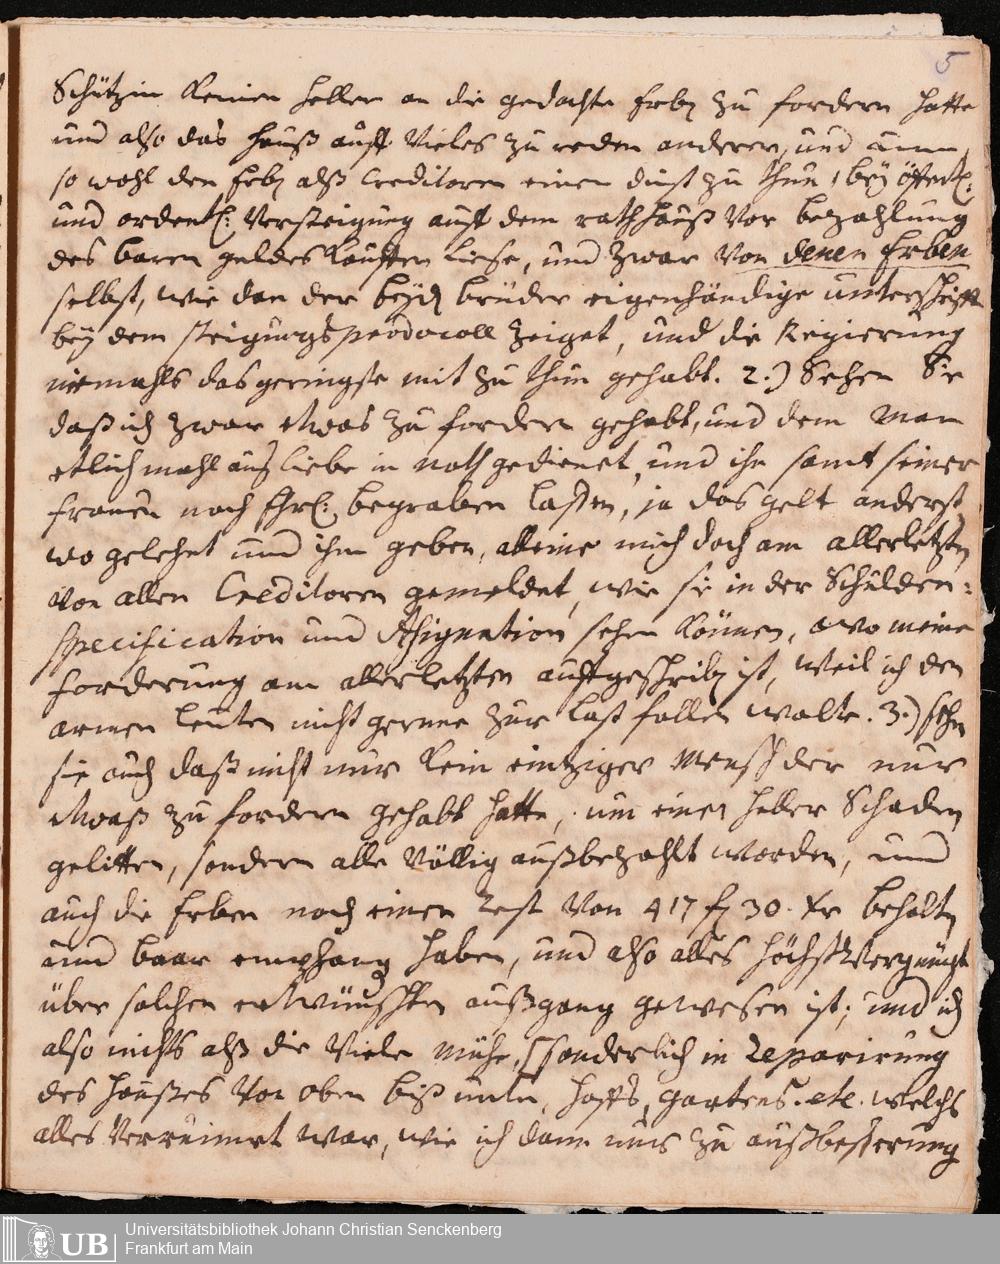 5
Schützin keinen heller an die gedachte Erbs zu fordern hatte
und also das Hauß auff Vieles zu reden anderer, und umb,
so wohl den Erbs alß Creditoren einen dinst zu thun, bey öffentl:
und ordentl: Versteigung auff dem rathhauß Vor bezahlung
des baren geldes kauffen liese, und zwar Von denen Erben
selbst, wie dan der beyds brüder eigenhändige unterschrifft
bey dem steigungs protocoll zeiget, und die Regierung
niemahls das geringste mit zu thun gehabt. 2.) Sehen Sie
daß ich zwar etwas zu fordern gehabt, und dem Man
etlich mahl auß liebe in noth gedienet, und ihn samt seiner
frauen noch Ehrl: begraben lassen, ja das gelt anderst
wo gelehnt und ihm geben, alleine mich doch am allerletzten
von allen Creditoren gemeldet, wie sie in der Schulden=
specification und Assignation sehen können, wo meine
forderung am allerletzten auffgeschrieben ist, weil ich den
armen leuten nicht gerne zur last fallen wolte. 3.) sehn
sie auch daß nicht nur kein eintziger Mensch der nur
etwaß zu fordern gehabt hatte, um einen heller Schaden
gelitten, sondern alle Völlig außbezahlt worden, und
auch die Erben noch einen Rest Von 417 fl 30. Xr behalten
und baar empfang haben, und also alles höchst Vergnügt
über solchen erwünschten außgang gewesen ist; und ich
also nichts alß die Viele Mühe, (sonderlich in Reparirung
des Haußes Von oben biß unten, hoffs, gartens. etc. welchs
alles Verruinirt war, wie ich dann nur zu außbesserung
Universitätsbibliothek Johann Christian Senckenberg
Frankfurt am Main
UB